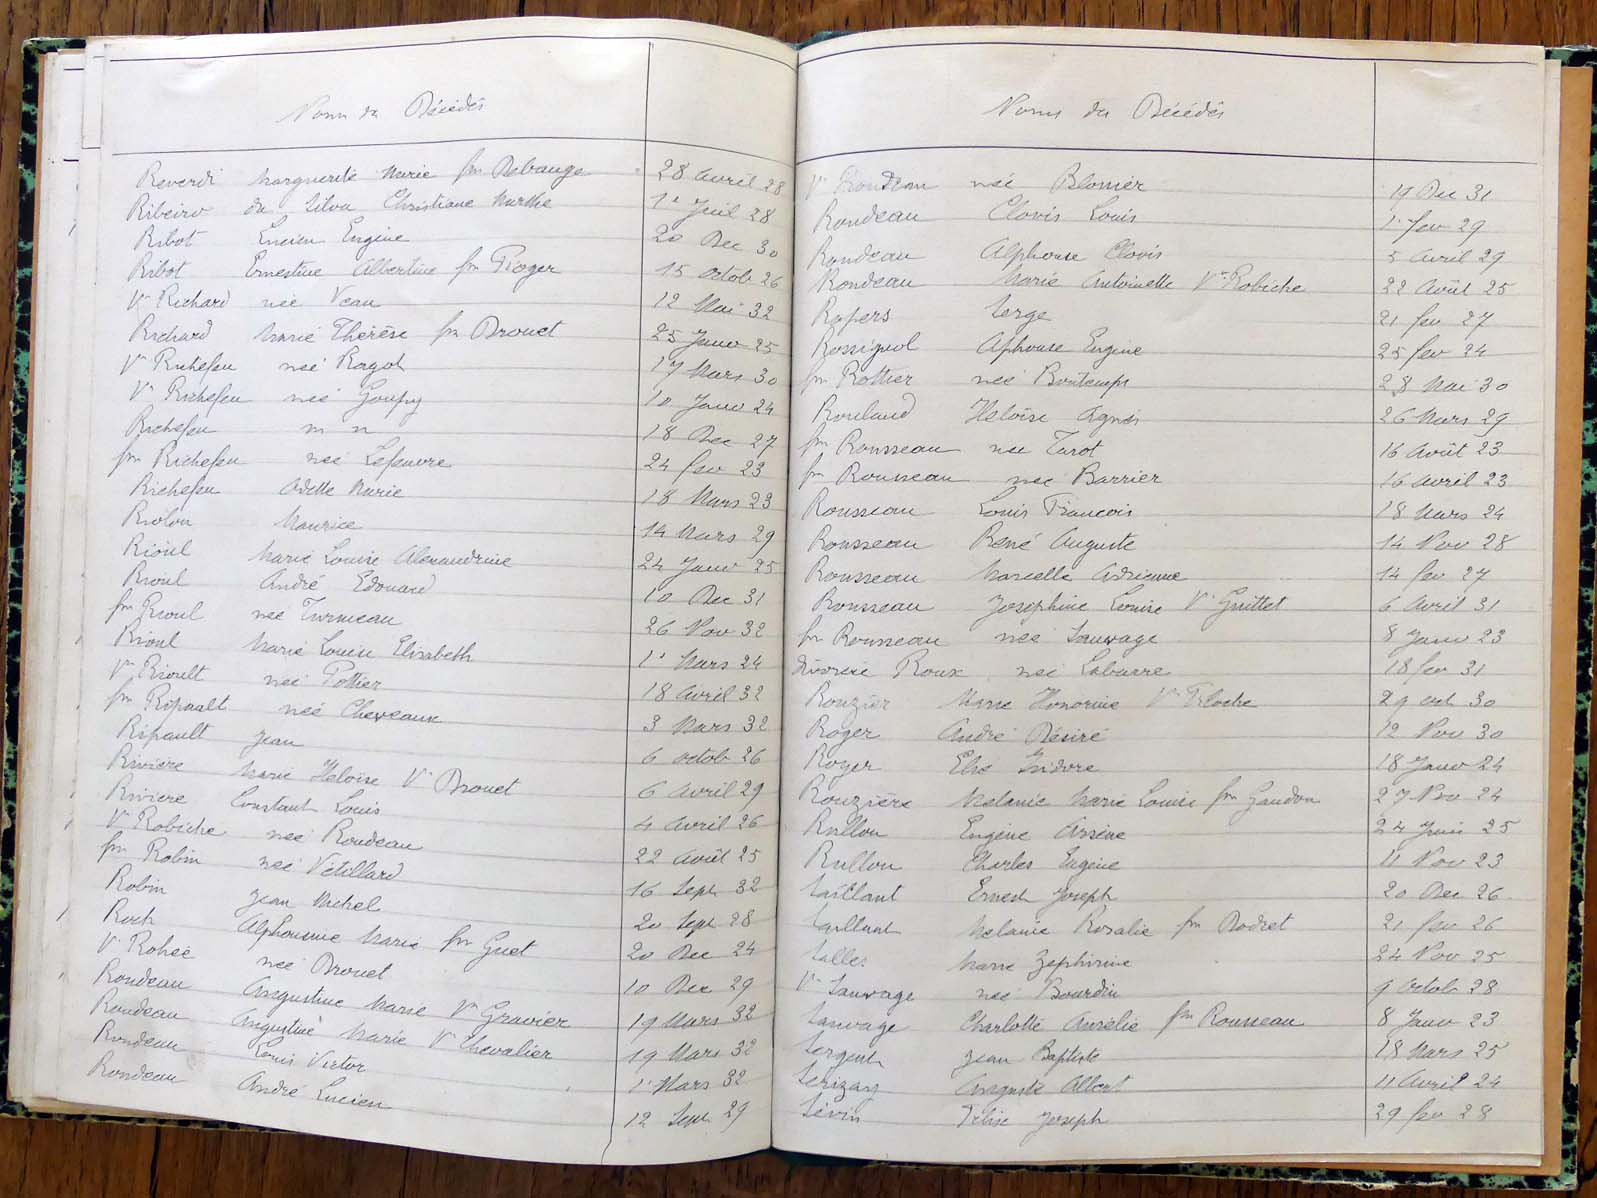 Noms des Décédés
Reverdi Marguerite Marie fme Debauge 28 avril 28
Ribeiro da Silva Christiane Marthe 1er Juil 28
Ribot Lucien Eugène 20 Dec 30
Ribot Ernestine Albertine fme Tioger 15 octob 26
Vve Richard née Veau 12 Mai 32
Richard Marie Thérèse fme Drouet 25 Janv 25
Vve Richefeu née Ragot 17 Mars 30
Vve Richefeu née Goupy 10 Janv 24
Richefeu m n 18 Dec 27
fme Richefeu née Lefeuvre 24 fev 23
Richefeu Odette Marie 18 Mars 23
Riolon Maurice 14 Mars 29
Rioul Marie Louise Alexandrine 24 Janv 25
Rioul André Edouard 10 Dec 31
fme Rioul née Turmeau 26 Nov 32
Rioul Marie Louise Elisabeth 1er Mars 24
Vve Rioult née Pottier 18 avril 32
fme Ripault née Cheveaux 3 Mars 32
Ripault Jean 6 octob 26
Riviere Marie Heloïse Vve Drouet 6 avril 29
Riviere Constant Louis 4 avril 26
Vve Robiche née Rondeau 22 août 25
fme Robin née Vetillard 16 Sept 32
Robin Jean Michel 20 Sept 28
Roch Alphonsine Marie fme Guet 20 Dec 24
Vve Rohée née Drouet 10 Dec 29
Rondeau Augustine Marie Vve Gravier 19 Mars 32
Rondeau Augustine Marie Vve Chevalier 19 Mars 32
Rondeau Louis Victor 1er Mars 32
Rondeau André Lucien 12 Sept 29
Noms des Décédés
Vve Rondeau née Blonier 19 Dec 31
Rondeau Clovis Louis 1er fev 29
Rondeau Alphonse Clovis 5 avril 29
Rondeau Marie Antoinette Vve Robiche 22 Août 25
Ropers Serge 21 fev 27
Rossignol Aphonse Eugène 25 fev 24
fme Rottier née Bontemps 28 Mai 30
Rouland Heloïse Agnès 26 Mars 29
fme Rousseau née Tarot 16 Août 23
fme Rousseau née Barrier 16 avril 23
Rousseau Louis François 18 Mars 24
Rousseau René Auguste 14 Nov 28
Rousseau Marcelle Adrienne 14 fev 27
Rousseau Joséphine Louise Vve Guittet 6 avril 31
fme Rousseau née Sauvage 8 Janv 23
divorcée Roux née Labarre 18 fev 31
Rouzier Marie Honorine Vve 29 oct 30
Roger André Désiré 12 Nov 30
Royer Elie Isidore 18 Janv 24
Rouzière Melanie Marie Louise fme Gaudon 27 Nov 24
Rullon Eugène Arsène 24 Juin 25
Rullon Charles Eugène 11 Nov 23
Saillant Ernest Joseph 20 Dec 26
Saillant Melanie Rosalie fme Rodret 21 fev 26
Salles Marie Zephirine 24 Nov 25
Vve Sauvage née Bourdin 9 octob 28
Sauvage Charlotte Aurélie fme Rousseau 8 Janv 23
Sergent Jean Baptiste 18 Mars 25
Serizay Auguste Albert 11 Avril 24
Sevin Félix Joseph 29 fev 28